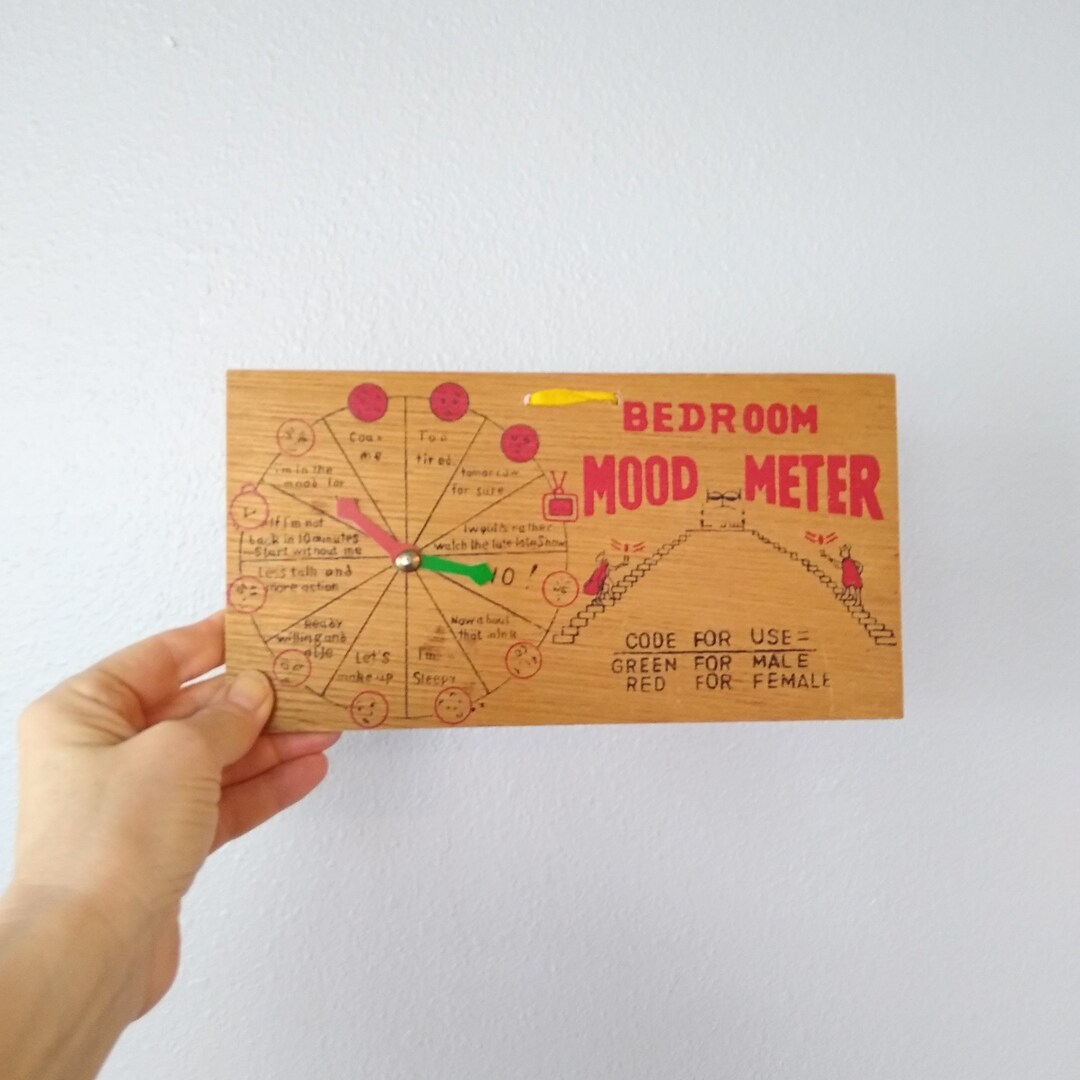 BEDROOM
MOOD METER
CODE FOR USE=
GREEN FOR MALE
RED FOR FEMALE
Coax
me
Too
tired
tomorrow
for sure
I would rather
watch the late late Show
NO !
Now about
that
I'm
Sleepy
Let's
make up
Ready
willing and
able
Less talk and
more action
If I'm not
back in 10 minutes
Start without me
I'm in the
mood for